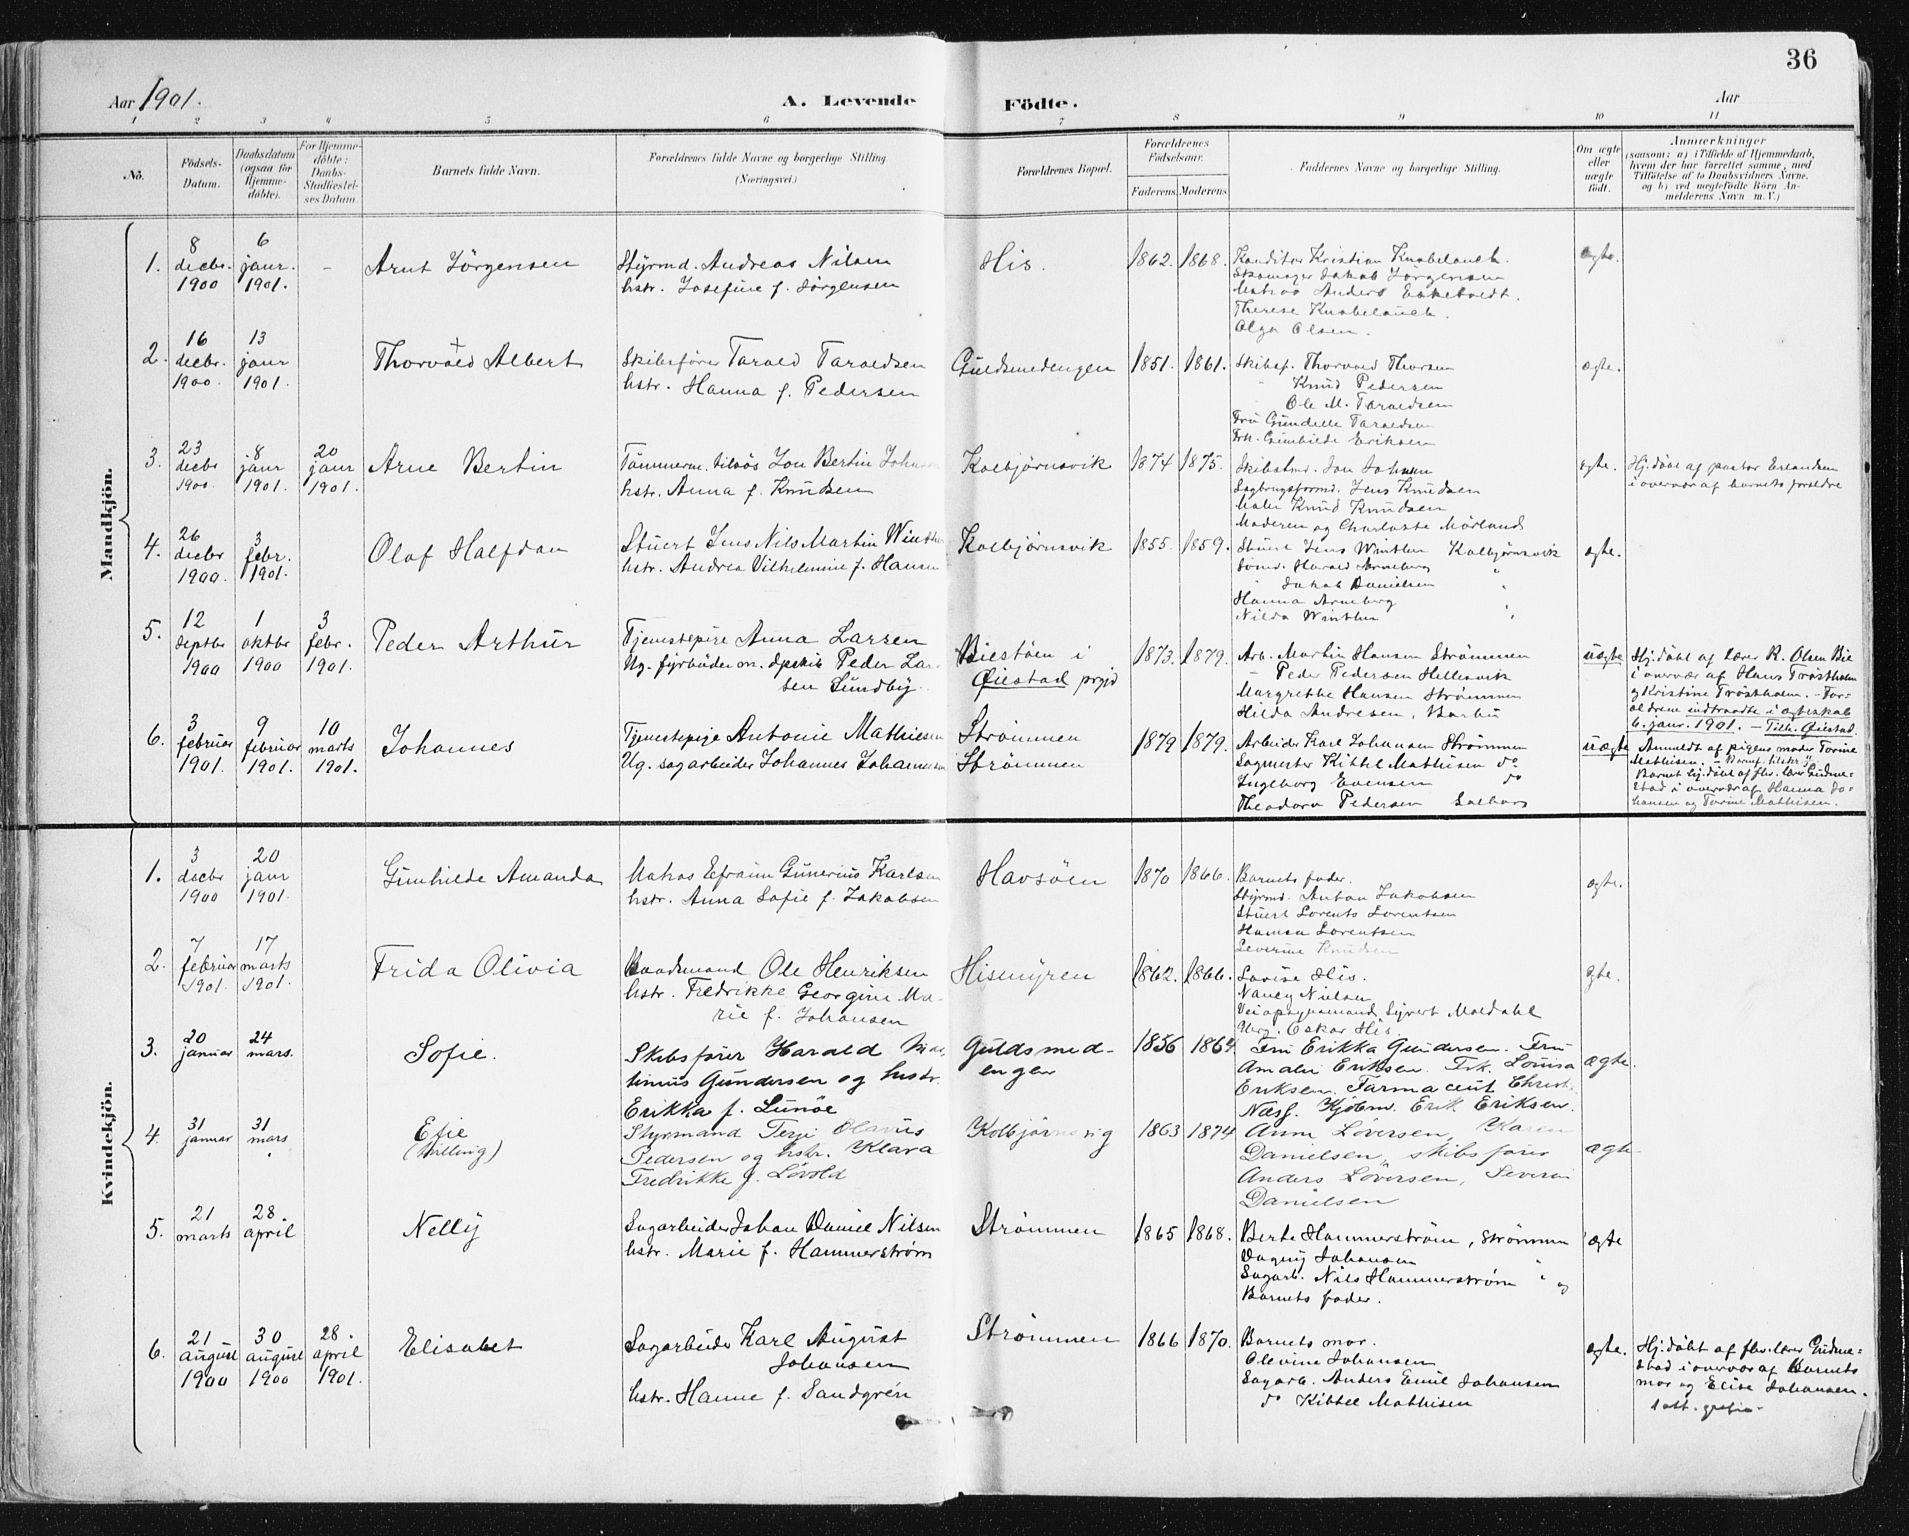 36
Aar 1901. A. Levende Födte. Aar
1 2 3 4 5 6 7 8 9 10 11
No.
Födsels-Datum.
Daabsdatum (ogsaa for Hjemmedöbte).
For Hjemmedöbte: Daabs-Stadfæstelses Datum.
Barnets fulde Navn.
Forældrenes fulde Navne og borgerlige Stilling. (Næringsvei.)
Forældrenes Bopæl.
Forældrenes Fødselsaar.
Faderens. Moderens.
Faddernes Navne og borgerlige Stilling.
Om ægte eller uægte født.
Anmærkninger
(saasom: a) i Tilfælde af Hjemmedaab,
hvem der har forrettet samme, med
Tilföielse af to Daabsvidners Navne.
og b) ved uægtefödte Börn An-
melderens Navn m. V.)
Mandkjön.
1. 8 decbr. 1900 6 janr. 1901. - Arnt Jörgensen
Styrmd. Andreas Nilsen
hstr. Josefine f. Jörgensen
His. 1862. 1868.
Konditor Kristian Knabelauch.
Skomager Jakob Jörgensen
Matros Anders
Therese Knabelauch.
Olga Olsen.
ægte.
2. 16 decbr. 1900. 13 janr 1901. Thorvald Albert
Skibsfører Tarald Taraldsen
hstr. Hanna f. Pedersen
Guldsmedengen 1851. 1861.
Skibsf. Thorvald Thorsen
" Knud Pedersen
Ole M. Taraldsen
Fru Gundelle Taraldsen
Frk. Gunhilde Eriksen
ægte.
3. 23 decbr 1900. 8 janr 1901. 20 janr 1901. Arne Bertin
Tömmerm. tilsös Jon Bertin
hstr. Anna f. Knudsen
Kolbjörnsvik 1874 1875.
Skibstmd. Jon Johnsen
Sagbrugsformd. Jens Knudsen
Maler Knud Knudsen
Moderen og Charlotte Mörland
ægte.
Hj.döbt af pastor Erlandsen
i overvær af barnets forældre
4. 26 decbr 1900. 3 febr. 1901. Olaf Halfdan
Stuert Jens Nils Martin
hstr. Andrea Vilhelmine f. Hansen
Kolbjörnsvik 1855. 1859.
Stuert Jens Winther Kolbjörnsvik
Sömd. Harald Arneberg "
" Jakob Danielsen "
Hanna Arneberg "
Nilda Winther "
ægte.
5. 12 septbr 1900 1 oktbr 1900 3 febr. 1901. Peder Arthur
Tjenestepige Anna Larsen
Ug. fyrbøder om. dpskib Peder Lar-
sen Sundby.
Biestöen i
Øiestad prgjd
1873. 1879.
Arb. Martin Hansen Strømmen
- Peder Pedersen Hellesvik
Margrethe Hansen Strømmen
Hilda Andresen, Barbu
uægte
Hj.döbt af lærer R. Olsen Bie
i overvær af Hans Tröstholm
og Kristine Tröstholm. - For-
ældrene indtraadte i ægteskab
6. janr. 1901. - Tilh. Øiestad.
6. 3 februar 1901. 9 februar 1901. 10 marts 1901. Johannes
Tjenestepige Antonie Mathiesen
Ug. sagarbeider Johannes Johannesen
Strömmen
Strömmen
1879 1879.
Arbeider Karl Johansen Strømmen
Sagmester Kittel Mathisen do
Ingeborg Evensen do
Theodora Pedersen
uægte
Anmeldt af pigens moder Torine
Mathisen.
Barnet hj.döbt af fhv. lærer Gudme-
stad i overvær af Hanna Jo-
hansen og Torine Mathisen.
Kvindekjön.
1. 3 decbr 1900 20 janr 1901. Gunhilde Amanda
Matros Efraim Gunerius Karlsen
hstr. Anna Sofie f. Jakobsen
Havsöen 1870 1866.
Barnets fader.
Styrmd. Anton Jakobsen
Stuert Lorents Lorentsen
Hansa Lorentsen
Severine Knudsen
ægte.
2. 7 februar 1901. 17 marts 1901. Frida Olivia
Baadsmand Ole Henriksen
hstr. Fredrikke Georgine Ma-
rie f. Johansen
Hismyren 1862. 1866.
Lovise His.
Nancy Nielsen
Veiopsynsmand Syvert Moldahl
Ung. Oskar His.
ægte.
3. 20 januar 24 mars. Sofie.
Skibsfører Harald
tinius Gundersen og hustr.
Erikka f. Lunöe
Guldsmed-
engen
1856 1864.
Fru Erikka Gundersen. Fru
Amalie Eriksen. Frk. Lovisa
Eriksen, Farmaceut Christ.
Næss. Kjöbm. Erik Eriksen.
ægte.
4. 31 januar 31 mars Elie
(tvilling)
Styrmand Terje Olavus
Pedersen og hstr. Klara
Fredrikke f. Lövold
Kolbjörnsvig 1863 1874
Anne Löversen, Karen
Danielsen, skibsfører
Anders Löversen, Severin
Danielsen
ægte
5. 21 marts 28 april Nelly
Sagarbeider Johan Daniel Nilsen
hstr. Marie f. Hammerström
Strömmen 1865 1868.
Berte Hammerström, Strömmen
Dagny Johansen "
Sagarb. Nils Hammerström " og
Barnets fader.
ægte
6. 21 august 1900 30 august 1900 28. april 1901. Elisabet
Sagarbeider Karl August
Johansen
hstr. Hanne f. Sandgrén
Strömmen 1866 1870.
Barnets mor.
Olevine Johansen
Sagarb. Anders Emil Johansen
do Kittel Mathisen
ægte.
Hj.döbt af fhv. lærer Gudme-
stad i overvær af Barnets
mor og Elise Johansen.